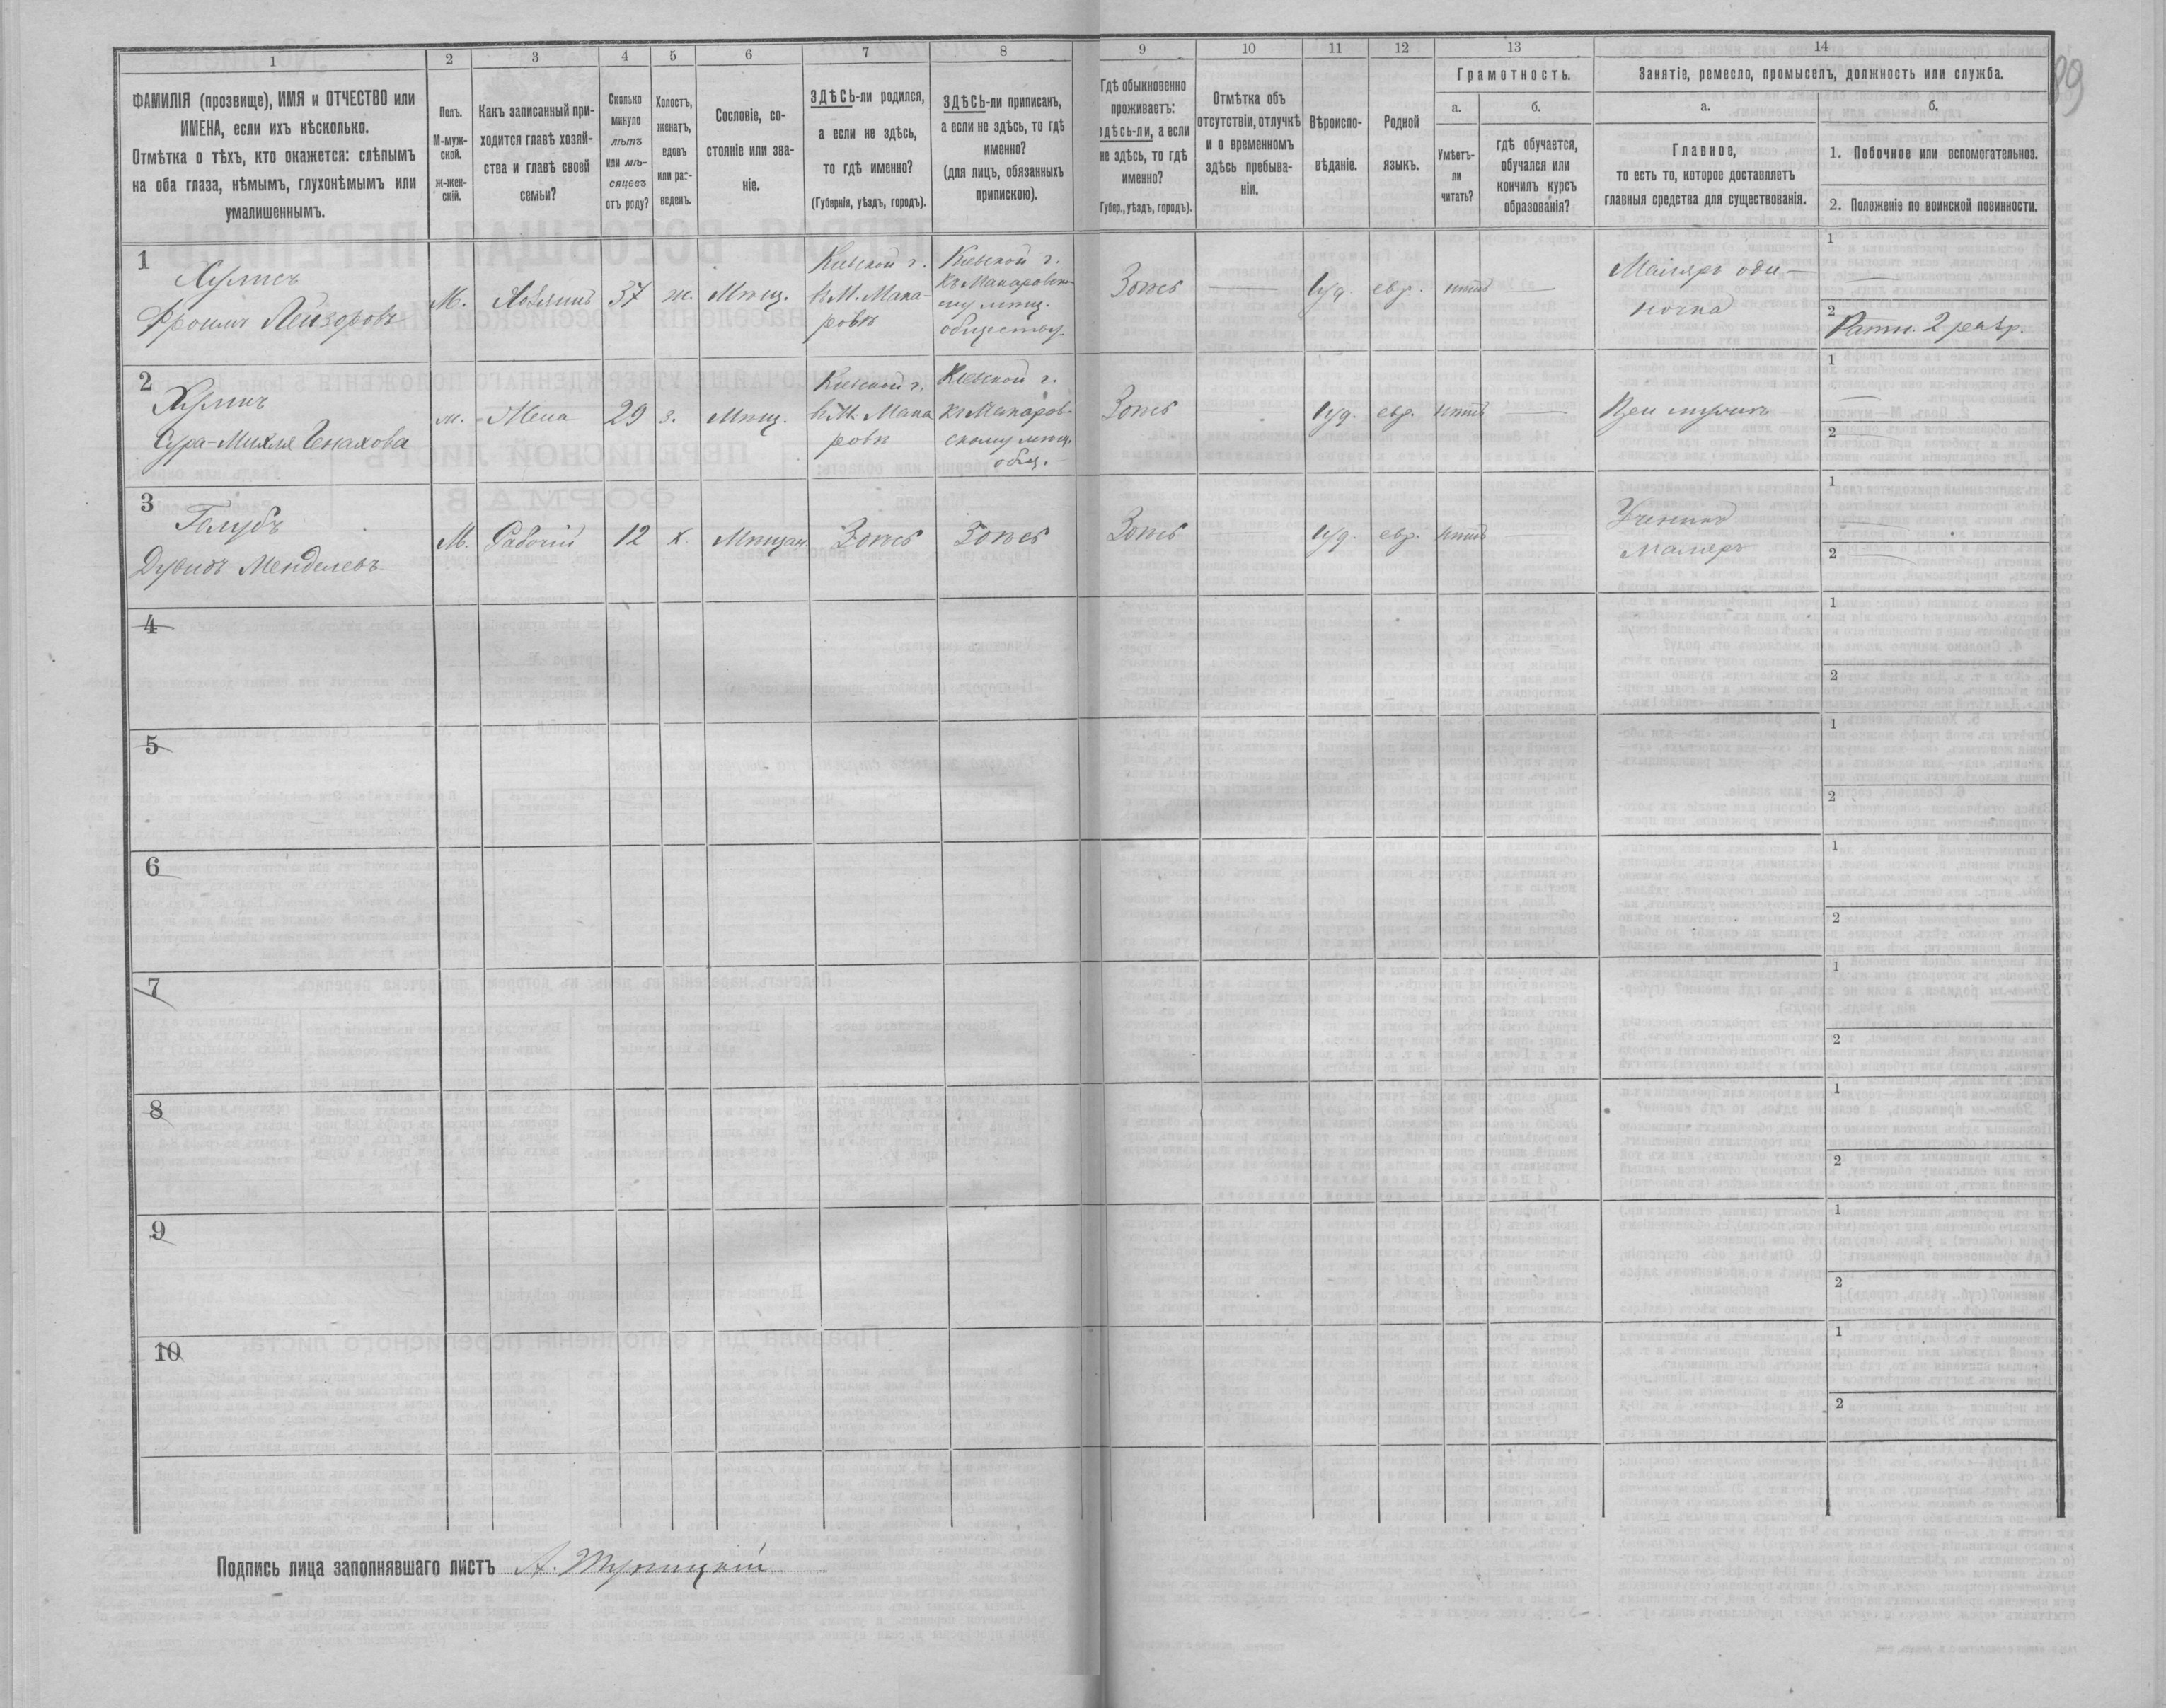 1
2
3
4
5
6
7
8
9
10
11
12
13
14
89
ФАМИЛІЯ (прозвище), ИМЯ и ОТЧЕСТВО или
ИМЕНА, если ихъ нѣсколько.
Отмѣтка о тѣхъ, кто окажется: слѣпымъ
на оба глаза, нѣмымъ, глухонѣмымъ или
умалишеннымъ.
Полъ.
М-муж-
ской.
Ж-жен-
скій.
Какъ записанный при-
ходится главѣ хозяй-
ства и главѣ своей
семьи?
Сколько
минуло
лѣтъ
или мѣ-
сяцевъ
отъ роду?
Холостъ,
женатъ,
вдовъ
или раз-
веденъ.
Сословіе, со-
стояніе или зва-
ніе.
ЗДѢСЬ-ли родился,
а если не здѣсь,
то гдѣ именно?
(Губернія, уѣздъ, городъ).
ЗДѢСЬ-ли приписанъ,
а если не здѣсь, то гдѣ
именно?
(для лицъ, обязанныхъ
припискою).
Гдѣ обыкновенно
проживаетъ:
здѣсь-ли, а если
не здѣсь, то гдѣ
именно?
(Губер., уѣздъ, городъ).
Отмѣтка объ
отсутствіи, отлучкѣ
и о временномъ
здѣсь пребыва-
ніи.
Вѣроиспо-
вѣданіе.
Родной
языкъ.
Грамотность.
а.
Умѣетъ-
ли
читать?
б.
гдѣ обучается,
обучался или
кончилъ курсъ
образованія?
Занятіе, ремесло, промыселъ, должность или служба.
а.
Главное,
то есть то, которое доставляетъ
главныя средства для существованія.
б.
1. Побочное или вспомогательное.
2. Положеніе по воинской повинности.
1
Фроимъ Лейзоровъ
М.
Хозяинъ
37
ж.
Мѣщ.
Кіевской г.
въ М. Мака-
ровѣ
Кіевской г.
къ Макаровско-
му мѣщ.
обществу
Здѣсь
Іуд.
евр.
нѣтъ
Маляръ оди-
ночка
1
2
Ратн. 2 разр.
2
Сура-Михля Генахова
ж.
Жена
29
з.
Мѣщ.
Кіевской г.
въ М. Мака
ровѣ
Кіевской г.
къ Макаров-
скому мѣщ.
общ.
Здѣсь
Іуд.
евр.
нѣтъ
При мужѣ
1
2
3
Голубъ
Дувидъ Менделевъ
М.
Рабочій
12
х.
Мѣщан.
Здѣсь
Здѣсь
Здѣсь
Іуд.
евр.
нѣтъ
Ученикъ
маляръ
1
2
4
1
2
5
1
2
6
1
2
7
1
2
8
1
2
9
1
2
10
1
2
Подпись лица заполнявшаго листъ